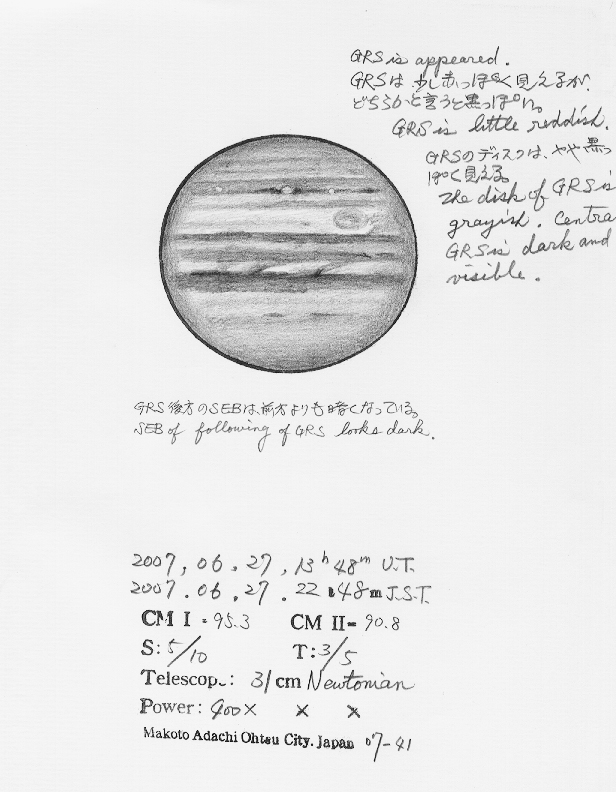 GRS is appeared.
GRSは 少し赤っぽく見えるが、
どちらかと言うと黒っぽい。
GRS is little reddish.
GRSのディスクは、やや黒っ
ぽく見える。
The disk of GRS is
grayish. Centra
GRS is dark and
visible.
GRS後方のSEBは、前方よりも暗くなっている。
SEB of following of GRS looks dark.
2007, 06, 27, 13h 48m U.T.
2007. 06. 27. 22h 48m J.S.T.
CM I = 95.3 CM II= 90.8
S: 5/10 T: 3/5
Telescop.: 31 cm Newtonian
Power: 400× × ×
Makoto Adachi Ohtsu City. Japan 07-41